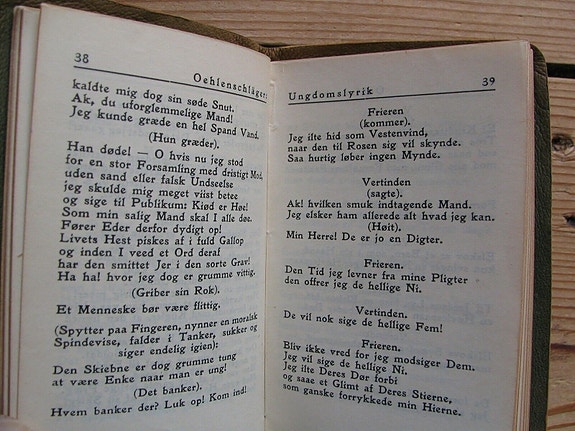 38
Oehlenschläger:
kaldte mig dog sin søde Snut.
Ak, du uforglemmelige Mand!
Jeg kunde græde en hel Spand Vand.
(Hun græder).
Han døde! — O hvis nu jeg stod
for en stor Forsamling med dristigt Mod,
uden sand eller falsk Undseelse
jeg skulde mig meget viist betee
og sige til Publikum: Kiød er Høe!
Som min salig Mand skal I alle døe.
Fører Eder derfor dydigt op!
Livets Hest piskes af i fuld Gallop
og inden I veed et Ord deraf
har den smittet Jer i den sorte Grav!
Ha ha! hvor jeg dog er grumme vittig.
(Griber sin Rok).
Et Menneske bør være flittig.
(Spytter paa Fingeren, nynner en moralsk
Spindevise, falder i Tanker, sukker og
siger endelig igien):
Den Skiebne er dog grumme tung
at være Enke naar man er ung!
(Det banker).
Hvem banker der? Luk op! Kom ind!
39
Ungdomslyrik
Frieren
(kommer).
Jeg ilte hid som Vestenvind,
naar den til Rosen sig vil skynde.
Saa hurtig løber ingen Mynde.
Vertinden
(sagte).
Ak! hvilken smuk indtagende Mand.
Jeg elsker ham allerede alt hvad jeg kan.
(Høit).
Min Herre! De er jo en Digter.
Frieren.
Den Tid jeg levner fra mine Pligter
den offrer jeg de hellige Ni.
Vertinden.
De vil nok sige de hellige Fem!
Frieren.
Bliv ikke vred for jeg modsiger Dem.
Jeg vil sige de hellige Ni.
Jeg ilte Deres Dør forbi
og saae et Glimt af Deres Stierne,
som ganske forrykkede min Hierne.